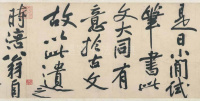 是日小閒試
筆書此
文大同有
意於古文
故以此遺
時涪翁自